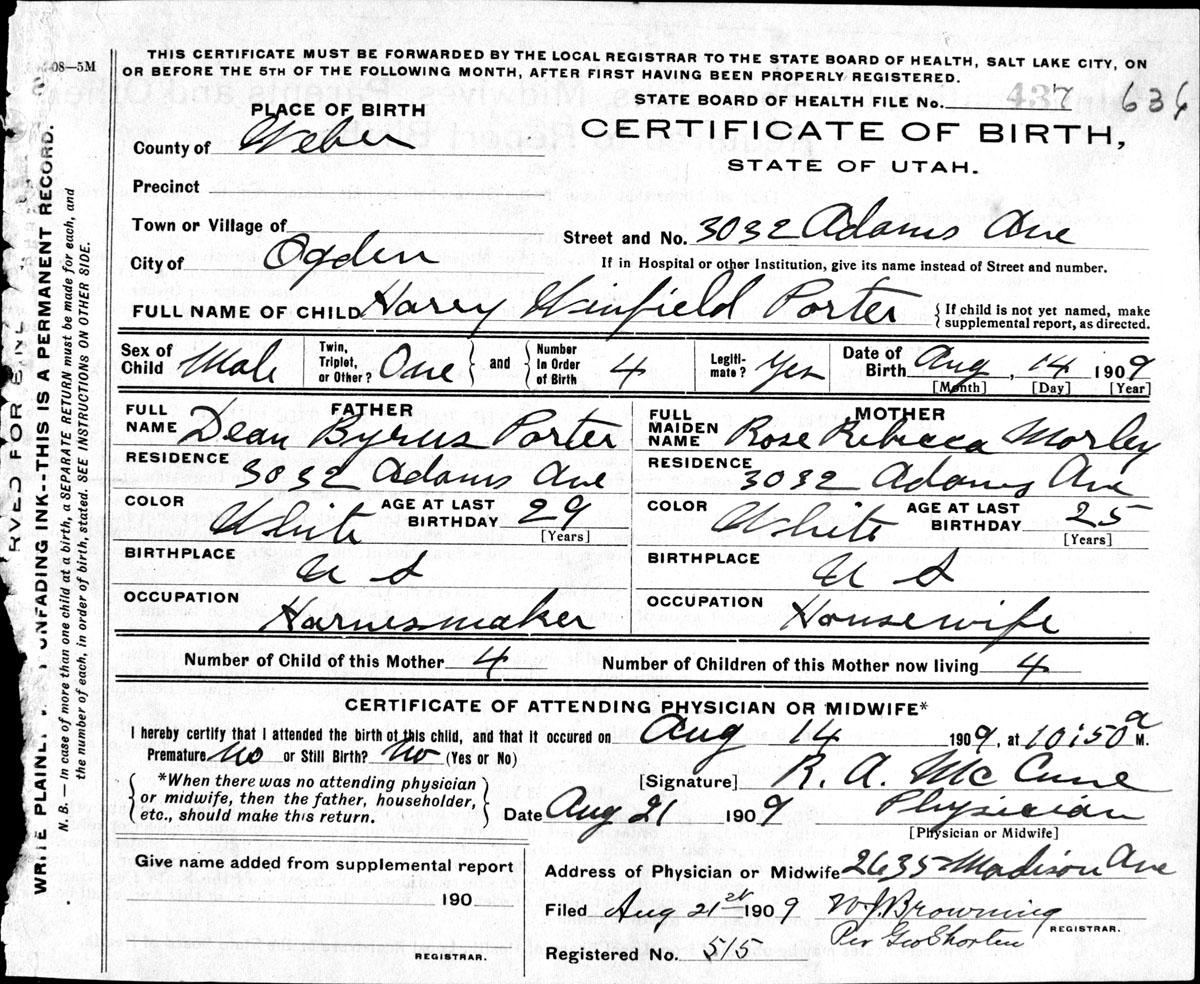 08—5M
THIS CERTIFICATE MUST BE FORWARDED BY THE LOCAL REGISTRAR TO THE STATE BOARD OF HEALTH, SALT LAKE CITY, ON
OR BEFORE THE 5TH OF THE FOLLOWING MONTH, AFTER FIRST HAVING BEEN PROPERLY REGISTERED.
STATE BOARD OF HEALTH FILE No. 437 636
PLACE OF BIRTH
CERTIFICATE OF BIRTH,
STATE OF UTAH.
County of Weber
Precinct
Town or Village of
Street and No. 3032 Adams Ave
City of Ogden
If in Hospital or other Institution, give its name instead of Street and number.
FULL NAME OF CHILD Harry Winfield Porter {If child is not yet named, make
supplemental report, as directed.
Sex of Child Male Twin, Triplet, or Other? One } and { Number In Order of Birth 4 Legiti-mate? Yes Date of Birth Aug, 14 1909
[Month] [Day] [Year]
FATHER
FULL NAME Dean Byrus Porter
RESIDENCE 3032 Adams Ave
COLOR White AGE AT LAST BIRTHDAY 29
[Years]
BIRTHPLACE U S
OCCUPATION Harnessmaker
MOTHER
FULL MAIDEN NAME Rose Rebicca Morley
RESIDENCE 3032 Adams Ave
COLOR White AGE AT LAST BIRTHDAY 25
[Years]
BIRTHPLACE U S
OCCUPATION Housewife
Number of Child of this Mother 4 Number of Children of this Mother now living 4
CERTIFICATE OF ATTENDING PHYSICIAN OR MIDWIFE*
I hereby certify that I attended the birth of this child, and that it occured on Aug 14 1909, at 10:50 a M.
Premature no or Still Birth? No (Yes or No)
*When there was no attending physician
or midwife, then the father, householder,
etc., should make this return.
[Signature] R. A. McCune
Date Aug 21 1909 Physician
[Physician or Midwife]
Give name added from supplemental report
190
REGISTRAR.
Address of Physician or Midwife 2635 Madison Ave
Filed Aug 21st 1909 W. J. Browning
REGISTRAR.
Per Geo Shorten
Registered No. 515
RVED FOR
WRITE PLAINLY UNFADING INK--THIS IS A PERMANENT RECORD.
N. B. — In case of more than one child at a birth, a SEPARATE RETURN must be made for each, and
the number of each, in order of birth, stated. SEE INSTRUCTIONS ON OTHER SIDE.